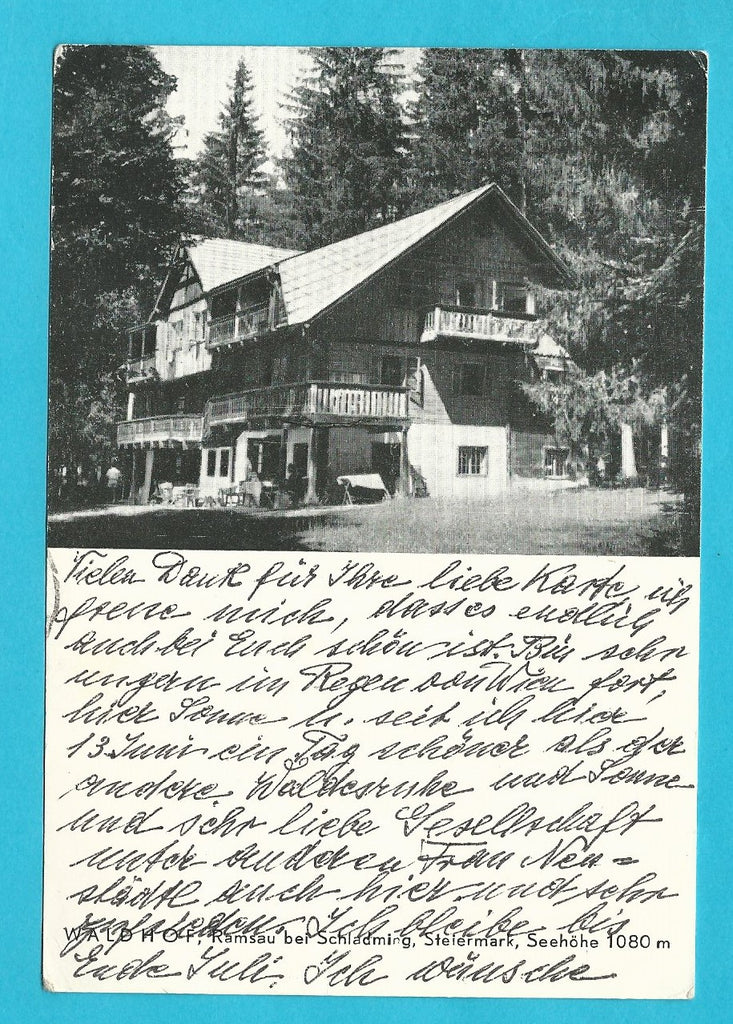 Vielen Dank für Ihre liebe Karte, ich
freue mich, dass es endlich
auch bei Euch schön ist. Bin sehr
ungern im Regen von Wien fort,
hier Sonne u. seit ich hier
13. Juni ein Tag schöner als der
andere Waldesruhe und Sonne
und sehr liebe Gesellschaft
unter anderen Frau Neu=
städtl auch hier und sehr
zufrieden. Ich bleibe bis
WALDHOF, Ramsau bei Schladming, Steiermark, Seehöhe 1080 m
Ende Juli. Ich wünsche